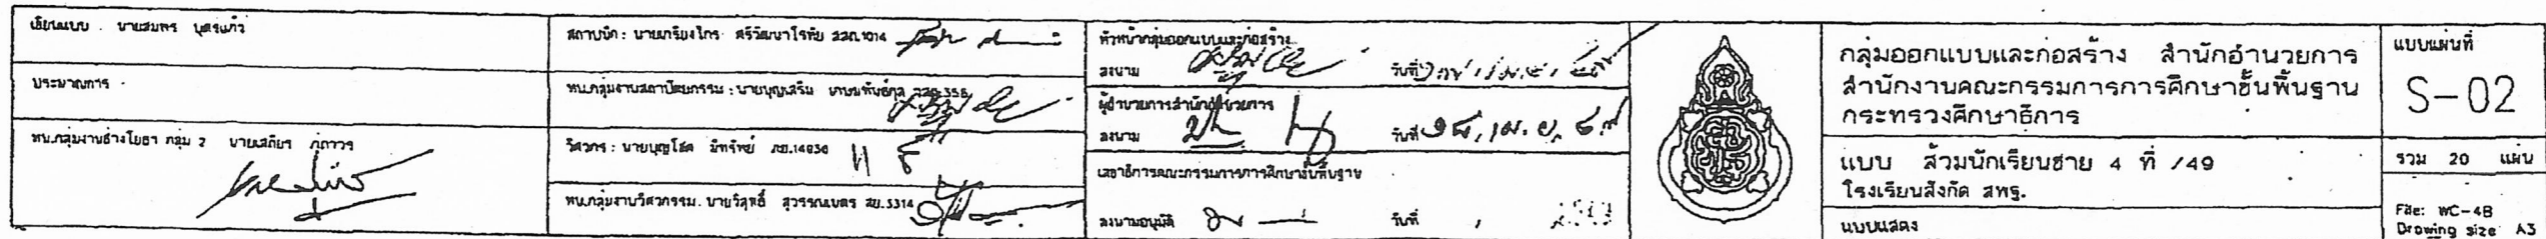 เขียนแบบ . นายสมพร บุตรแก้ว
ประมาณการ -
หน.กลุ่มงานช่างโยธา กลุ่ม 2 นายเสถียร
สถาปนิก : นายเกรียงไกร ศรีวัฒนาโรทัย
หน.กลุ่มงานสถาปัตยกรรม : นายบุญเสริม
วิศวกร : นายบุญโชค ภย.14936
หน.กลุ่มงานวิศวกรรม. นายวิสุทธิ์ สุวรรณเนตร สย.5314
หัวหน้ากลุ่มออกแบบและก่อสร้าง
ลงนาม วันที่
ผู้อำนวยการสำนักอำนวยการ
ลงนาม วันที่
เลขาธิการคณะกรรมการการศึกษาขั้นพื้นฐาน
ลงนามอนุมัติ วันที่
กลุ่มออกแบบและก่อสร้าง สำนักอำนวยการ
สำนักงานคณะกรรมการการศึกษาขั้นพื้นฐาน
กระทรวงศึกษาธิการ
แบบ ส้วมนักเรียนชาย 4 ที่ /49
โรงเรียนสังกัด สพฐ.
แบบแสดง
แบบแผ่นที่
S-02
รวม 20 แผ่น
File: WC-4B
Drawing size A3